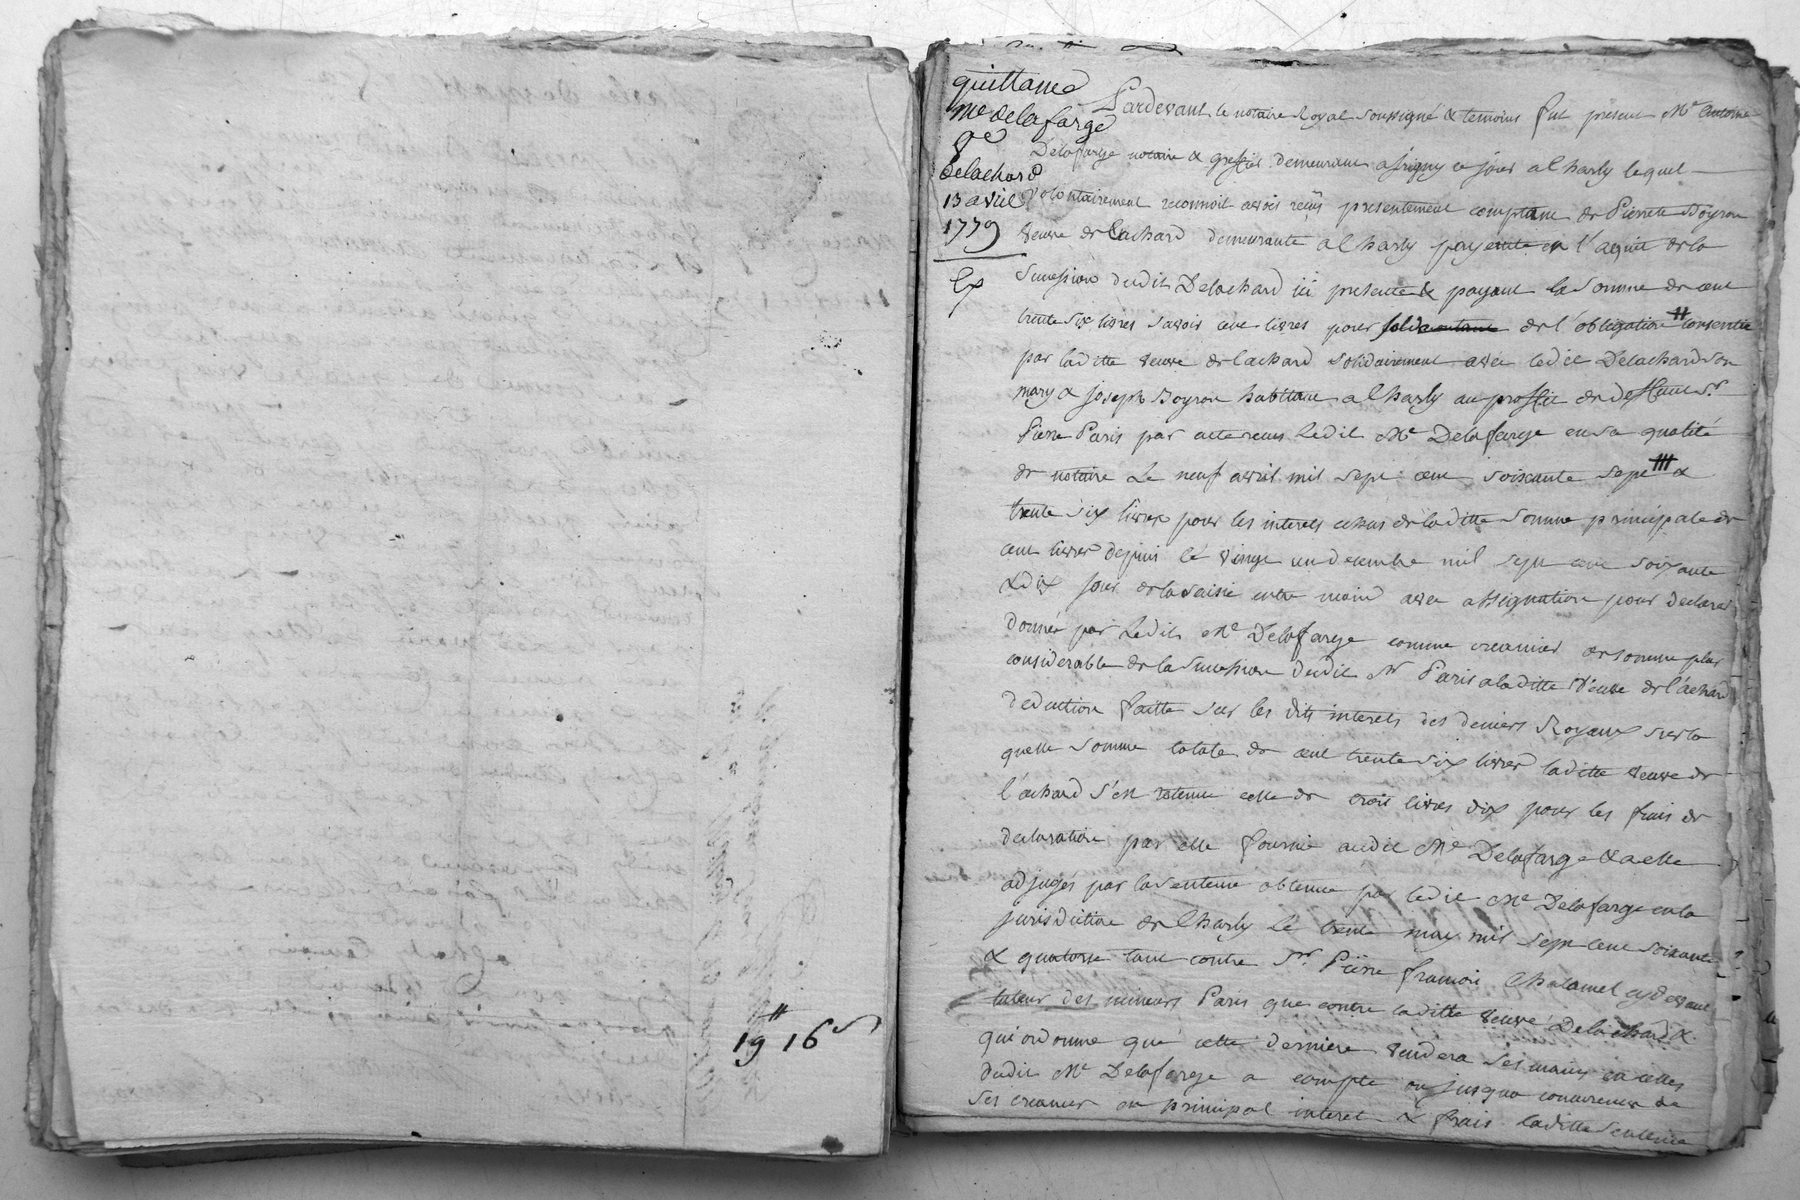 19# 16s
quittance
Me delafarge
Delachard
13 avril
1779
Ex
Pardevant le notaire Royal soussigné & temoins fut present Me antoine
Delafarge notaire & greffier demeurant a ce jour a Charly lequel
volontairement reconnoit avoir reçus presentement comptant de Pierrette Boyron
veuve de lachard demeurante a Charly payante en l'aquit de la
succession dudit Delachard ici presente & payant la somme de cent
trente six livres savoir cent livres pour solde de l'obligation # consentie
par laditte veuve de lachard solidairement avec ledit Delachard son
mary & joseph Boyron habitant a Charly au proffit de deffunt Sr
Pierre Paris par acte recus ledit Me Delafarge en sa qualité
de notaire Le neuf avril mil sept cent soixante sept &
trente six livres pour les interets echus de laditte somme principale de
cent livres depuis le vingt un decembre mil sept cent soixante
& dix jour de la saisie entre mains avec assignation pour declarer
donnée par Ledit Me Delafarge comme creancier de somme plus
considerable de la succession dudit Sr Paris a laditte veuve de l'achard
deduction faitte sur les dits interets des deniers Royaux sur la
quelle somme totale de cent trente six livres laditte veuve de
l'achard s'est retenue celle de trois livres dix pour les frais de
declaration par elle fournie audit Me Delafarge & a elle
adjugés par la sentence obtenue par ledit Me Delafarge en la
jurisdiction de Charly Le trente may mil sept cent soixante
& quatorze tant contre Sr Pierre francois Chalamel cydevant
tuteur des mineurs Paris que contre laditte veuve Delachard &
qui ordonne que cette derniere vuidera ses mains en celles
dudit Me Delafarge a compte ou jusqua concurrence de
ses creances en principal interet & frais laditte sentence